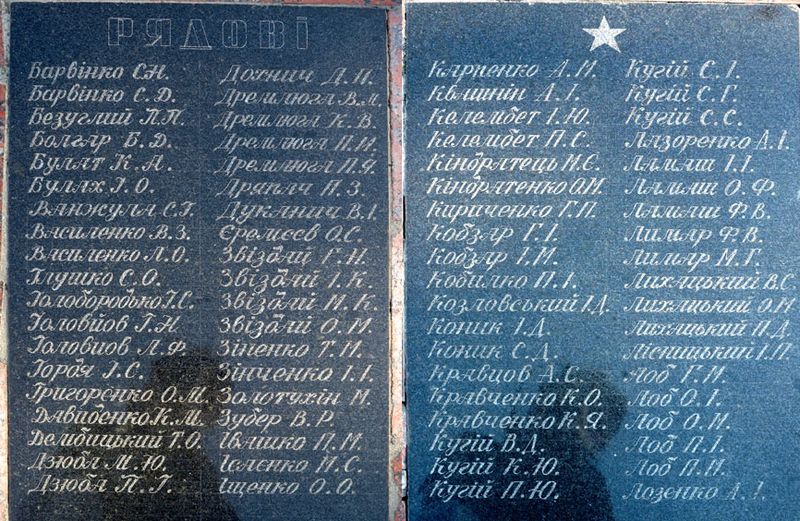 РЯДОВІ
Барвінко С.Н.
Барвінко Є.Д.
Безуглий П.П.
Болгар Б.Д.
Булат К.А.
Булах І.О.
Ванжула Є.Г.
Василенко В.З.
Василенко Л.О.
Глушко С.О.
Голобородько І.С.
Головйов Г.Н.
Головцов Л.Ф.
Горбя І.С.
Григоренко О.М.
Давиденко К.М.
Дембицький Т.О.
Дзюба М.Ю.
Дзюба П.Г.
Дохнич Д.П.
Дремлюга В.М.
Дремлюга К.В.
Дремлюга П.И.
Дремлюга П.Я.
Дряпач П.З.
Дуканич В.І.
Єремєєв О.С.
Звіздай Г.Н.
Звіздай І.К.
Звіздай М.К.
Звіздай О.М.
Зіненко Т.М.
Зінченко І.І.
Золотухін М.
Зубер В.Р.
Івашко П.М.
Ієвенко И.С.
Іщенко О.О.
Карпенко А.М.
Квашнін А.І.
Келембет І.Ю.
Келембет П.Є.
Кіндратець М.Є.
Кіндратенко О.М.
Кириченко Г.П.
Кобзар Г.І.
Кобзар І.М.
Кобилко П.І.
Козловський І.Д.
Коник І.Д.
Коник С.Д.
Кравцов А.С.
Кравченко К.О.
Кравченко К.Я.
Кугій В.Д.
Кугій К.Ю.
Кугій П.Ю.
Кугій Є.І.
Кугій С.Г.
Кугій С.С.
Лазоренко А.І.
Ламаш І.І.
Ламаш О.Ф.
Ламаш Ф.В.
Лимар Ф.В.
Лимар М.Г.
Лихацький В.С.
Лихацький О.М.
Лихацький П.Д.
Лісницький І.П.
Лоб Г.М.
Лоб О.І.
Лоб О.М.
Лоб П.І.
Лоб П.И.
Лозенко А.І.